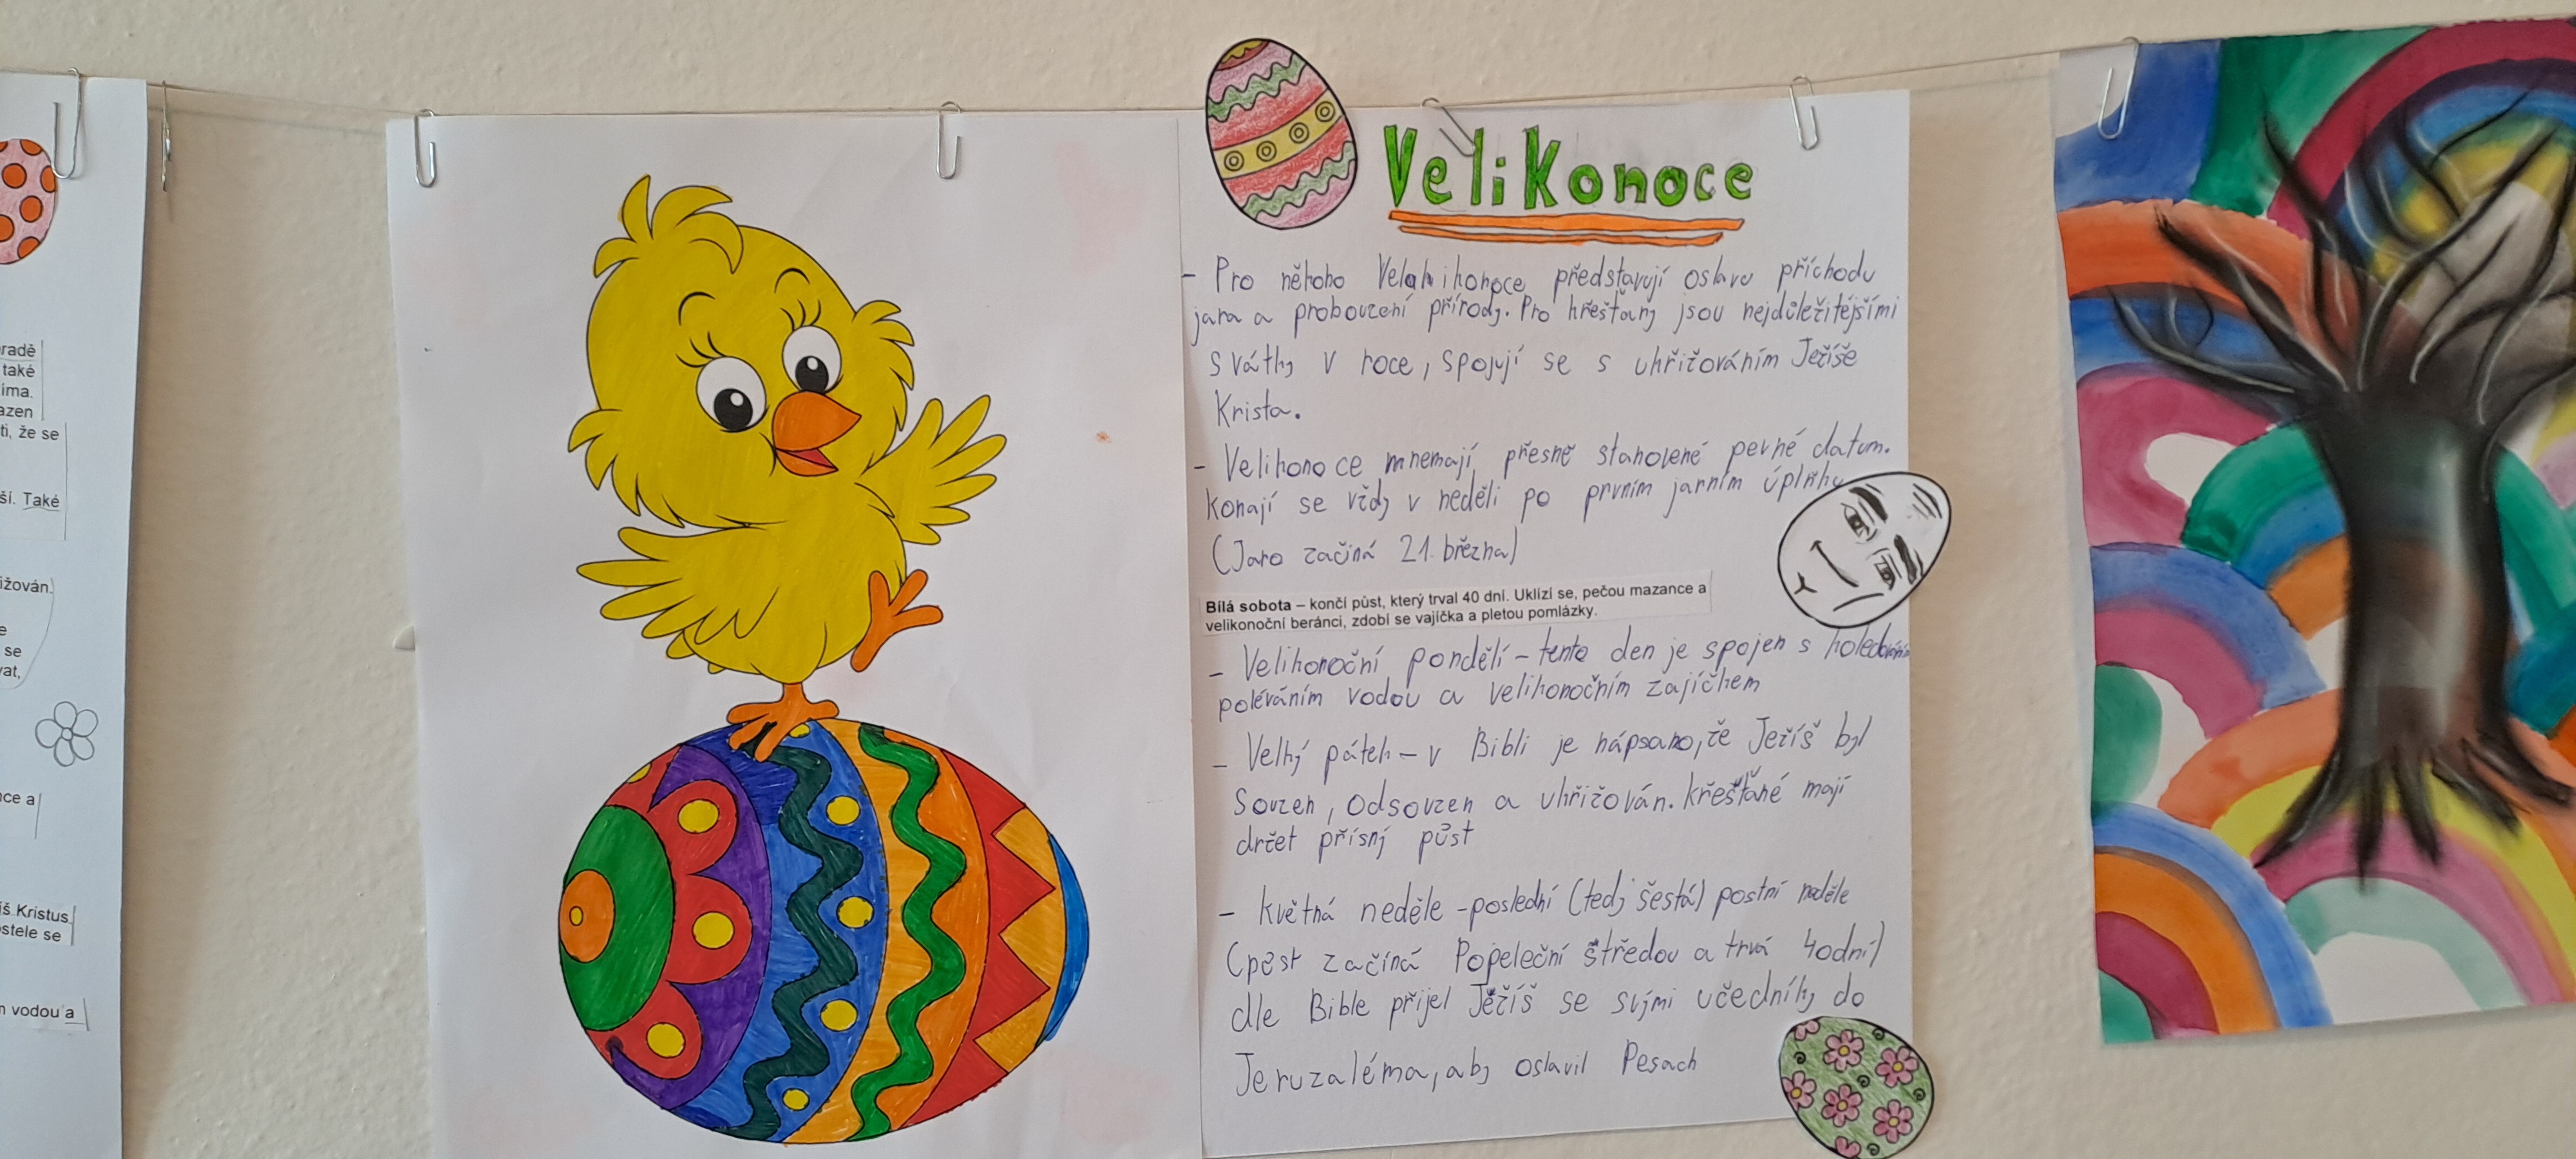 radě
také
ima.
azen
ti, že se
ší. Také
ižován.
e
se
vat,
ice a
iš Kristus
ostele se
m vodou a
Velikonoce
- Pro někoho Velikonoce představují oslavu příchodu
jara a probouzení přírody. Pro křešťany jsou nejdůležitějšími
svátky v roce, spojují se s ukřižováním Ježíše
Krista.
- Velikonoce nemají přesně stanovené pevné datum.
Konají se vždy v neděli po prvním jarním úplňku
(Jaro začíná 21. března)
Bílá sobota – končí půst, který trval 40 dní. Uklízí se, pečou mazance a
velikonoční beránci, zdobí se vajíčka a pletou pomlázky.
- Velikonoční pondělí - tento den je spojen s koledováním
poléváním vodou a velikonočním zajíčkem
- Velký pátek - v Bibli je nápsano, že Ježíš byl
Souzen, odsouzen a ukřižován. Křesťané mají
držet přísný půst
- květná neděle - poslední (tedy šestá) postní neděle
(půst začíná Popeleční středou a trvá 40dní)
dle Bible přijel Ježíš se svými učedníky do
Jeruzaléma, aby oslavil Pesach